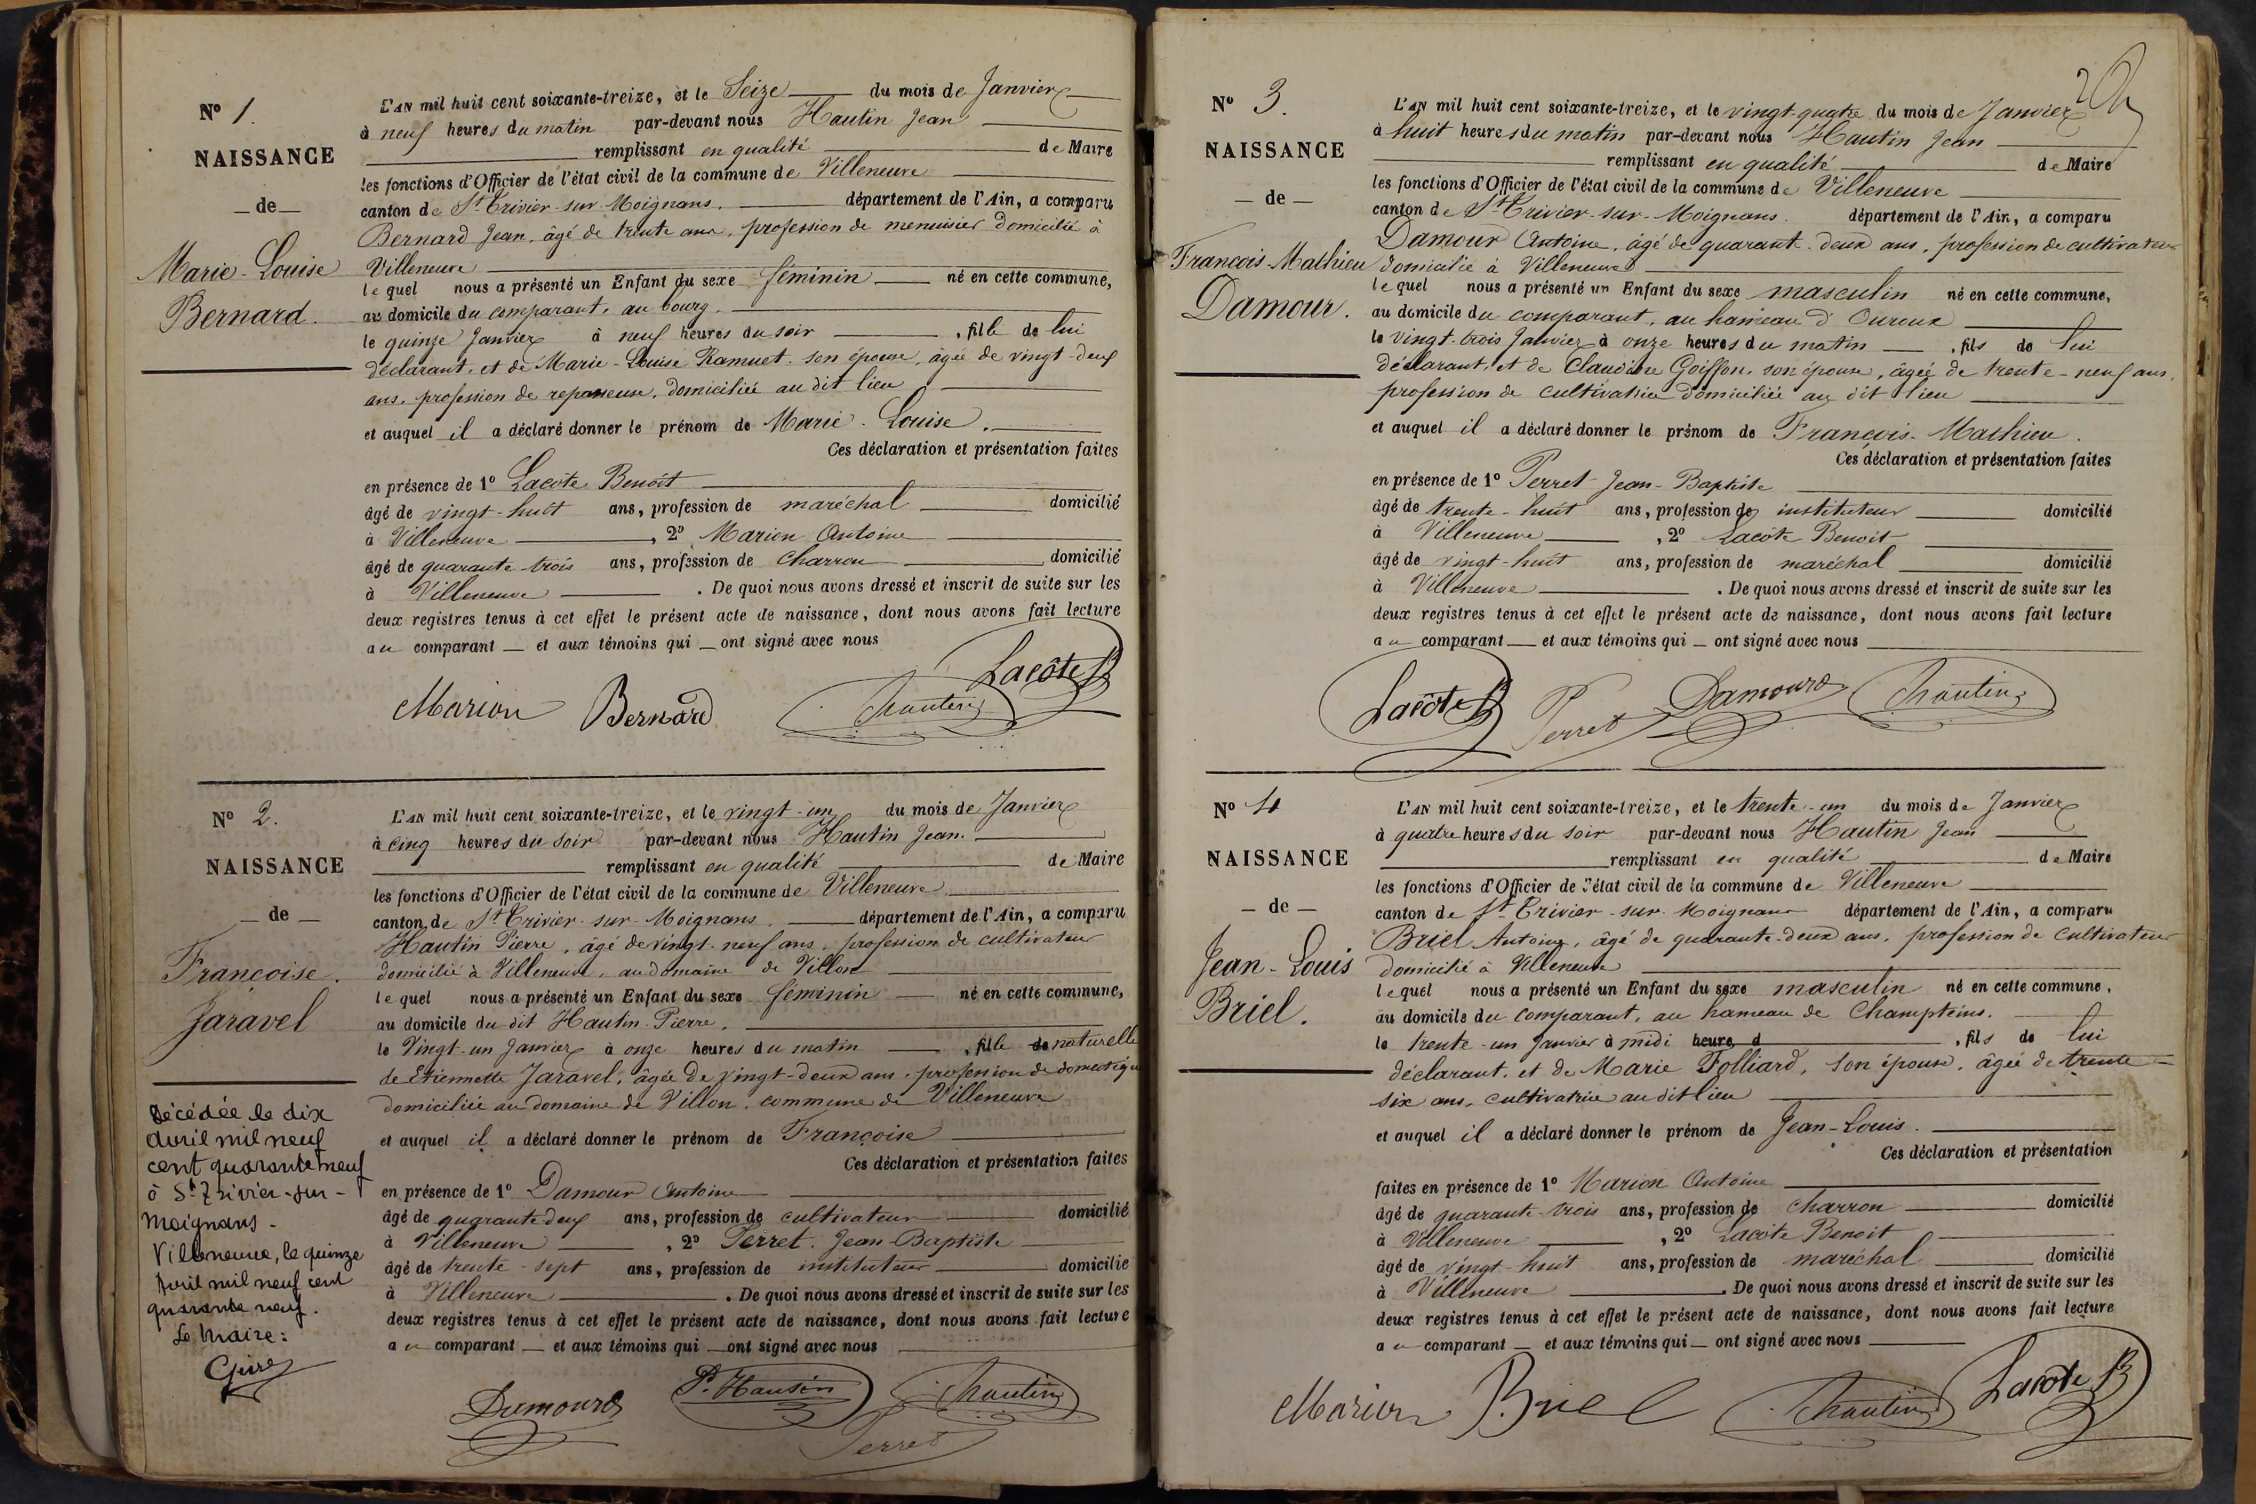 N° 1.
NAISSANCE
— de —
Marie-Louise
Bernard.
L'AN mil huit cent soixante-treize, et le Seize du mois de Janvier
à neuf heures du matin par-devant nous Hautin Jean
remplissant en qualité de Maire
les fonctions d'Officier de l'état civil de la commune de Villeneuve
canton de St Trivier-sur-Moignans. département de l'Ain, a comparu
Bernard Jean, âgé de trente ans, profession de menuisier domicilié à
Villeneuve
lequel nous a présenté un Enfant du sexe féminin né en cette commune,
au domicile du comparant, au bourg.
le quinze Janvier à neuf heures du soir , fille de lui
déclarant, et de Marie-Louise Ramuet, son épouse, âgée de vingt-deux
ans, profession de repasseuse, domiciliée au dit lieu
et auquel il a déclaré donner le prénom de Marie-Louise.
Ces déclaration et présentation faites
en présence de 1° Lacôte Benoit
âgé de vingt-huit ans, profession de maréchal domicilié
à Villeneuve , 2° Marion Antoine
âgé de quarante-trois ans, profession de charron domicilié
à Villeneuve . De quoi nous avons dressé et inscrit de suite sur les
deux registres tenus à cet effet le présent acte de naissance, dont nous avons fait lecture
au comparant — et aux témoins qui — ont signé avec nous
Lacôte B
Marion Bernard Jhautin
N° 2.
NAISSANCE
— de —
Françoise.
Jaravel
Décédée le dix
avril mil neuf
cent quarante neuf
à St Trivier-sur-
Moignans-
Villeneuve, le quinze
Avril mil neuf cent
quarante neuf.
Le Maire:
L'AN mil huit cent soixante-treize, et le vingt-un du mois de Janvier
à cinq heures du soir par-devant nous Hautin Jean.
remplissant en qualité de Maire
les fonctions d'Officier de l'état civil de la commune de Villeneuve
canton de St Trivier-sur-Moignans. département de l'Ain, a comparu
Hautin Pierre, âgé de vingt-neuf ans, profession de cultivateur
domicilié à Villeneuve, au domaine de Villon
lequel nous a présenté un Enfant du sexe féminin né en cette commune,
au domicile du dit Hautin Pierre.
le Vingt-un Janvier à onze heures du matin , fille de naturelle
de Etiennette Jaravel, âgée de vingt-deux ans, profession de domestique
domiciliée au domaine de Villon, commune de Villeneuve
et auquel il a déclaré donner le prénom de Françoise
Ces déclaration et présentation faites
en présence de 1° Damour Antoine
âgé de quarante-deux ans, profession de cultivateur domicilié
à Villeneuve , 2° Perret Jean-Baptiste
âgé de trente-sept ans, profession de instituteur domicilié
à Villeneuve . De quoi nous avons dressé et inscrit de suite sur les
deux registres tenus à cet effet le présent acte de naissance, dont nous avons fait lecture
au comparant — et aux témoins qui — ont signé avec nous
Damour P. Hautin Jhautin
Perret
N° 3.
NAISSANCE
— de —
François-Mathieu
Damour.
L'AN mil huit cent soixante-treize, et le vingt-quatre du mois de Janvier
à huit heures du matin par-devant nous Hautin Jean
remplissant en qualité de Maire
les fonctions d'Officier de l'état civil de la commune de Villeneuve
canton de St Trivier-sur-Moignans. département de l'Ain, a comparu
Damour Antoine, âgé de quarante-deux ans, profession de cultivateur
domicilié à Villeneuve
lequel nous a présenté un Enfant du sexe masculin né en cette commune,
au domicile du comparant, au hameau d'Ouroux
le vingt-trois Janvier à onze heures du matin , fils de lui
déclarant, et de Claudine Goiffon, son épouse, âgée de trente-neuf ans,
profession de cultivatrice domiciliée au dit lieu
et auquel il a déclaré donner le prénom de François-Mathieu.
Ces déclaration et présentation faites
en présence de 1° Perret Jean-Baptiste
âgé de trente-huit ans, profession de instituteur domicilié
à Villeneuve , 2° Lacôte Benoit
âgé de vingt-huit ans, profession de maréchal domicilié
à Villeneuve . De quoi nous avons dressé et inscrit de suite sur les
deux registres tenus à cet effet le présent acte de naissance, dont nous avons fait lecture
au comparant — et aux témoins qui — ont signé avec nous
Lacôte B Perret Damour Jhautin
N° 4
NAISSANCE
— de —
Jean-Louis
Briel.
L'AN mil huit cent soixante-treize, et le trente-un du mois de Janvier
à quatre heures du soir par-devant nous Hautin Jean
remplissant en qualité de Maire
les fonctions d'Officier de l'état civil de la commune de Villeneuve
canton de St Trivier-sur-Moignans département de l'Ain, a comparu
Briel Antoine, âgé de quarante-deux ans, profession de cultivateur
domicilié à Villeneuve
lequel nous a présenté un Enfant du sexe masculin né en cette commune,
au domicile du comparant, au hameau de Champteins.
le trente-un Janvier à midi heure d , fils de lui
déclarant, et de Marie Folliard, son épouse, âgée de trente-
six ans, cultivatrice au dit lieu
et auquel il a déclaré donner le prénom de Jean-Louis.
Ces déclaration et présentation
faites en présence de 1° Marion Antoine
âgé de quarante-trois ans, profession de charron domicilié
à Villeneuve , 2° Lacôte Benoit
âgé de vingt-huit ans, profession de maréchal domicilié
à Villeneuve . De quoi nous avons dressé et inscrit de suite sur les
deux registres tenus à cet effet le présent acte de naissance, dont nous avons fait lecture
au comparant — et aux témoins qui — ont signé avec nous
Marion Briel Jhautin Lacôte B